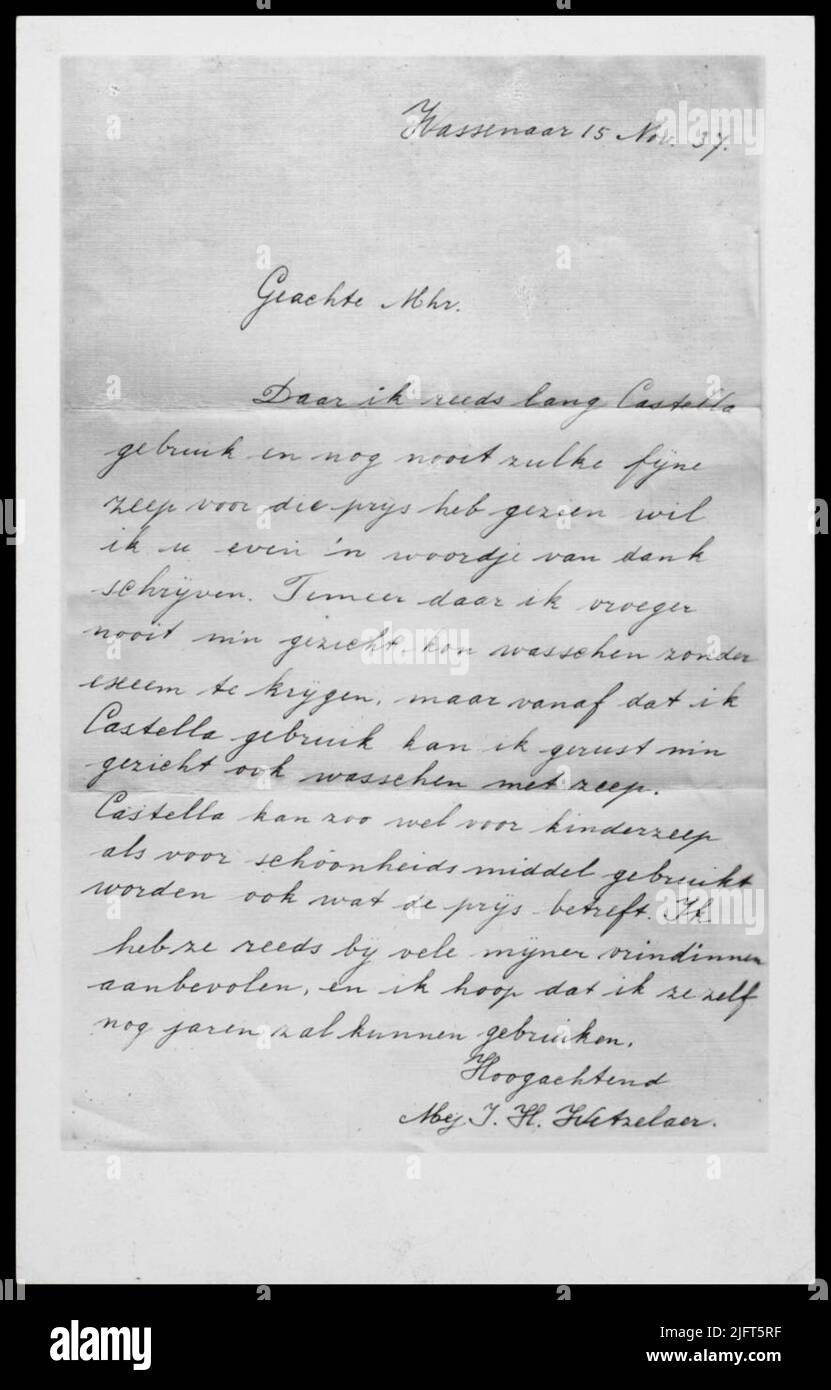 Wassenaar 15 Nov. 37.
Geachte Mhr.
Daar ik reeds lang Castella
gebruik en nog nooit zulke fijne
zeep voor die prijs heb gezien wil
ik u even 'n woordje van dank
schrijven. Temeer daar ik vroeger
nooit m'n gezicht kon wasschen zonder
exeem te krijgen, maar vanaf dat ik
Castella gebruik kan ik gerust m'n
gezicht ook wasschen met zeep.
Castella kan zoo wel voor kinderzeep
als voor schoonheidsmiddel gebruikt
worden ook wat de prijs betreft. Ik
heb ze reeds bij vele mijner vrindinnen
aanbevolen, en ik hoop dat ik ze zelf
nog jaren zal kunnen gebruiken.
Hoogachtend
Mej J. H. Wetzelaer.
alamy
Image ID: 2JFT5RF
www.alamy.com